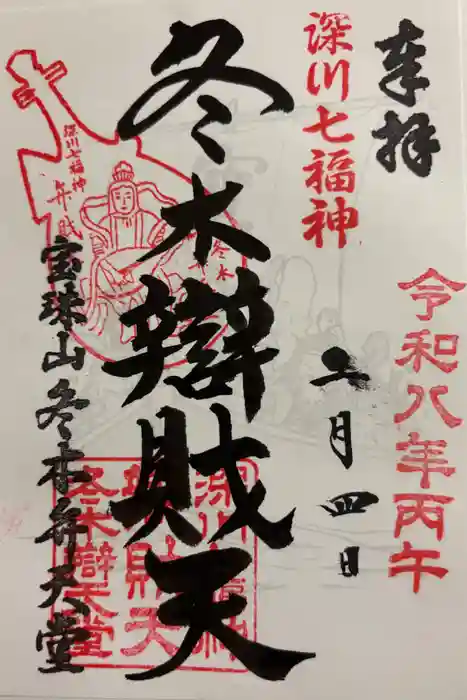 奉拝
令和八年丙午
月四日
深川七福神
冬木辯財天
宝珠山冬木弁天堂
深川七福神
弁財
冬木
深川七福神
辯財天
冬木辯天堂